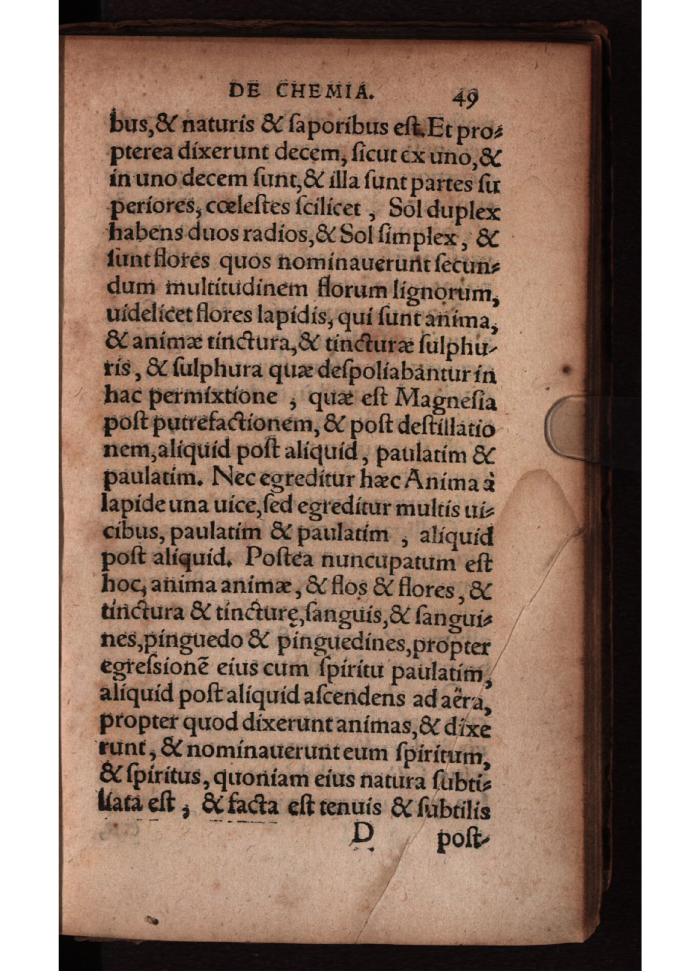 DE CHEMIA. 49
bus,& naturis & saporibus est. Et pro⸗
pterea dixerunt decem, sicut ex uno,&
in uno decem sunt,& illa sunt partes su
periores, cœlestes scilicet , Sol duplex
habens duos radios,& Sol simplex, &
sunt flores quos nominauerunt secun⸗
dum multitudinem florum lignorum,
uidelicet flores lapidis, qui sunt anima,
& animæ tinctura,& tincturæ sulphu⸗
ris, & sulphura quæ despoliabantur in
hac permixtione , quæ est Magnesia
post putrefactionem, & post destillatio
nem,aliquid post aliquid, paulatim &
paulatim. Nec egreditur hæc Anima à
lapide una uice,sed egreditur multis ui⸗
cibus, paulatim & paulatim , aliquid
post aliquid. Postea nuncupatum est
hoc, anima animæ, & flos & flores, &
tinctura & tincturę,sanguis,& sangui⸗
nes,pinguedo & pinguedines,propter
egressionẽ eius cum spiritu paulatim,
aliquid post aliquid ascendens ad aëra,
propter quod dixerunt animas,& dixe
runt, & nominauerunt eum spiritum,
& spiritus, quoniam eius natura subti⸗
liata est , & facta est tenuis & subtilis
D post⸗